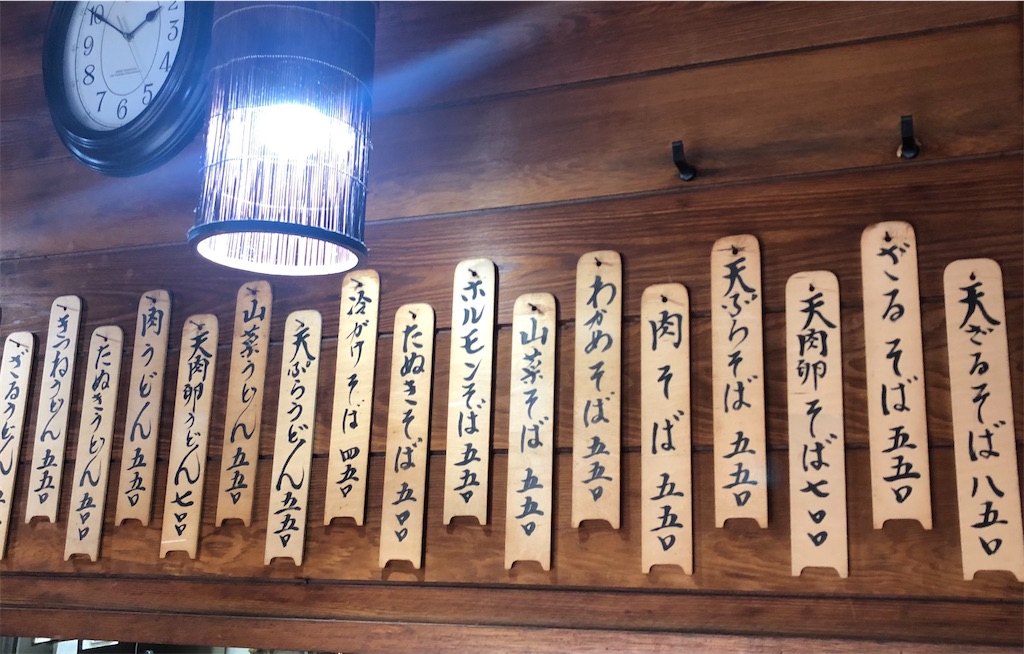 天ざるそば 八五〇
ざるそば 五五〇
天肉卵そば 七〇〇
天ぷらそば 五五〇
肉そば 五五〇
わかめそば 五五〇
山菜そば 五五〇
ホルモンそば 五五〇
たぬきそば 五〇〇
冷がけそば 四五〇
天ぷらうどん 五五〇
山菜うどん 五五〇
天肉卵うどん 七〇〇
肉うどん 五五〇
たぬきうどん 五〇〇
きつねうどん 五五〇
ざるうどん
10
2
3
4
5
6
7
8
9